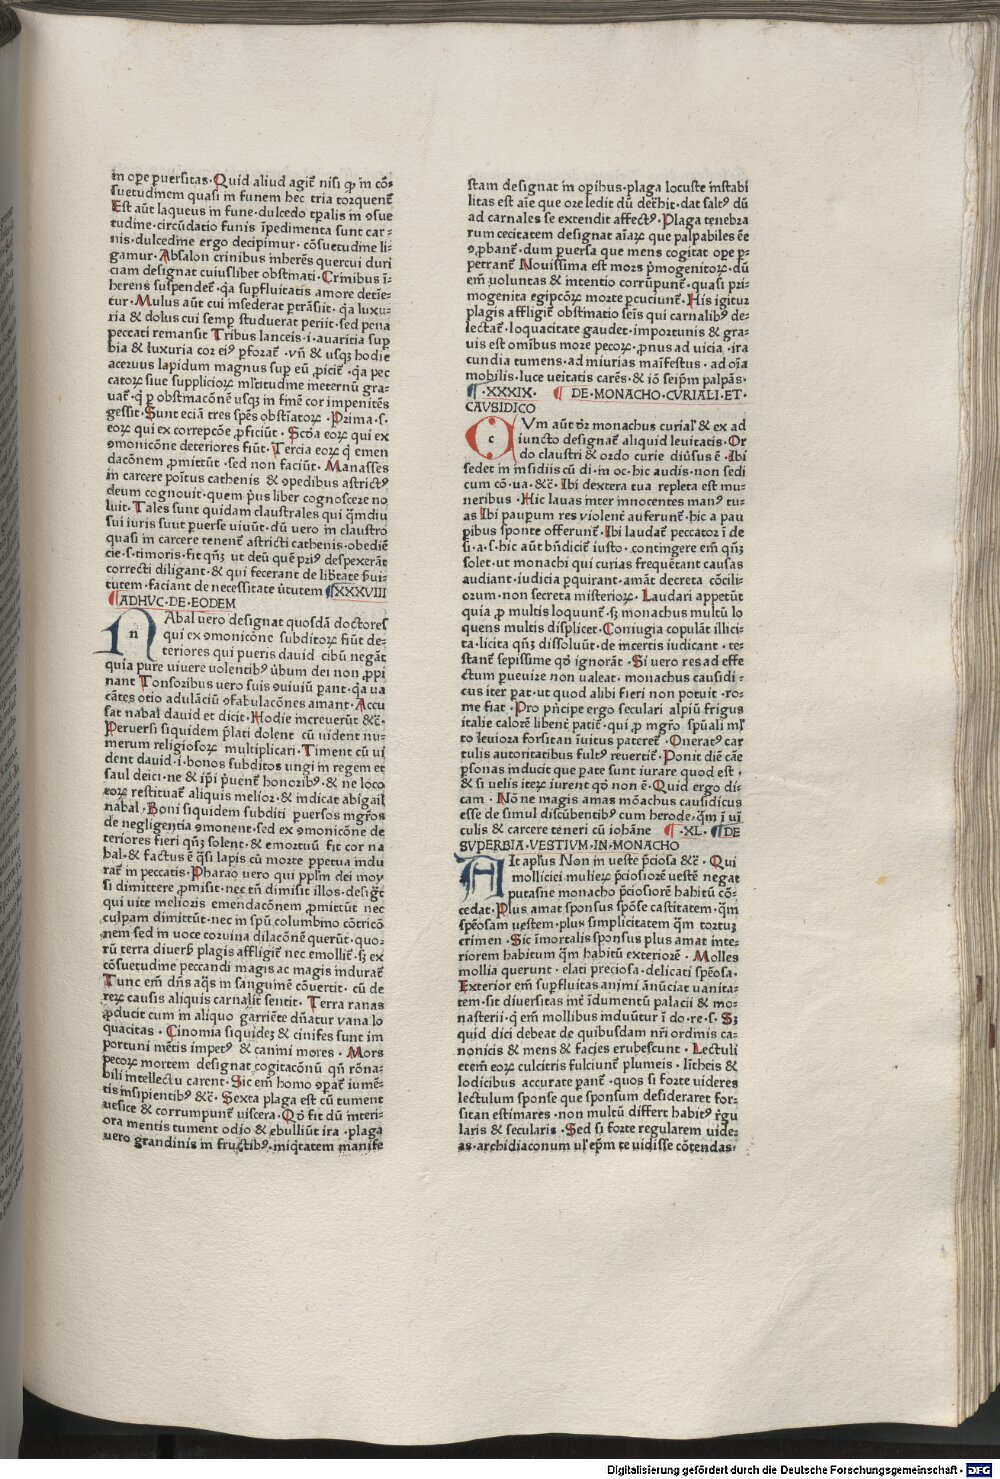 in ope puersitas·Quid aliud agit̄ nisi ꝙ in cō⸗
suetudinem quasi in funem hec tria torquent̄
Est aūt laqueus in fune·dulcedo tp̄alis in ꝯsue
tudine·circūdatio funis īpedimenta sunt car⸗
nis·dulcedine ergo decipimur·cōsuetudine li⸗
gamur·Absalon crinibus inherēs quercui duri
ciam designat cuiuslibet obstinati·Crinibus ī⸗
herens suspendet̄·q̇a supfluitatis amore detie⸗
tur·Mulus aūt cui insederat ptrāsiit·q̇a luxu⸗
ria & dolus cui semp studuerat periit·sed pena
peccati remansit Tribus lanceis·i·avaritia sup
bia & luxuria cor eiꝰ pforat̄·vn̄ & usqꝫ hodie
acervus lapidum magnus sup eū ꝓicit̄·q̇a pec
catoꝝ sive supplicioꝝ ml̄titudine meternū gra⸗
uat̄·q̇ p obstinacōnē usqꝫ in finē cor impenitēs
gessit·Sunt eciā tres spēs obstiatoꝝ·Prima·s·
eoꝝ qui ex correpcōe ꝓficiūt·Scda eoꝝ qui ex
ꝯmonicōne deteriores fiūt·Tercia eoꝝ q̇ emen
dacōnem ꝓmittūt·sed non faciūt·Manasses
in carcere poītus cathenis & ꝯpedibus astrictꝰ
deum cognouit·quem pus liber cognoscere no
luit·Tales sunt quidam claustrales qui q̄mdiu
sui iuris suut puerse uiuūt·dū uero in claustro
quasi in carcere tenent̄ astricti cathenis·obediē
cie·s·timoris·fit qn̄ꝫ ut deū quē priꝰ despexerāt
correcti diligant·& qui fecerant de libtate pui⸗
tutem·faciant de necessitate u̇tutem ¶XXXVIII
¶ADHVC·DE·EODEM
NAbal uero designat quosdā doctores
qui ex ꝯmonicōne subditoꝝ fiūt de⸗
teriores qui pueris david cibū negāt
quia pure uiuere uolentibꝰ u̇bum dei non ꝓpi
nant Tonsoribus uero suis ꝯuiuiū pant·q̇a ua
cātes otio adulāciū ꝯfabulacōnes amant·Accu
sat nabal dauid et dicit·Hodie increuerūt &c̄·
Peruersi siquidem plati dolent cū uident nu⸗
merum religiosoꝝ multiplicari·Timent cū ui
dent dauid·i·bonos subditos ungi in regem et
saul deici·ne & ip̄i puent̄ honoribꝰ·& ne loco
eoꝝ restituat̄ aliquis melior·& indicat abigail
nabal·Boni siquidem subditi puersos mgr̄os
de negligentia ꝯmonent·sed ex ꝯmonicōne de
teriores fieri qn̄ꝫ solent·& emortuū fit cor na
bal·& factus ē q̄si lapis cū morte ppetua indu
rat̄ in peccatis·Pharao uero qui ppl̄m dei moy
si dimittere ꝓmisit·nec tn̄ dimisit illos·desigt̄
qui uite melioris emendacōnem ꝓmittūt nec
culpam dimittūt·nec in sp̄u columbino cōtricō
nem sed in uoce coruina dilacōnē querūt·quo⸗
rū terra diuersis plagis affligit̄ nec emollit̄·sꝫ ex
cōsuetudine peccandi magis ac magis indurat̄
Tunc em̄ dn̄s aq̇s in sanguinē cōuertit·cū de
reꝝ causis aliquis carnalit̄ sentit·Terra ranas
ꝓducit cum in aliquo garriēte dn̄atur vana lo
quacitas·Cinomia siquideꝫ & cinifes sunt im
portuni mētis impetꝰ & canini mores·Mors
pecoꝝ mortem designat cogitacōnū qn̄ rōna⸗
bili intellectu carent·Sic em̄ homo ꝯpat̄ iumē⸗
tis insipientibꝰ &c̄·Sexta plaga est cū tument
uesice & corrumpunt̄ uiscera·Qꝺ fit dū interi⸗
ora mentis tument odio & ebulliūt ira·plaga
uero grandinis in fructibꝰ·iniq̇tatem manife
stam designat in opibus·plaga locuste instabi
litas est aīe que ore ledit dū detrhit·dat saltꝰ dū
ad carnales se extendit affectꝰ·Plaga tenebra
rum cecitatem designat aīaꝝ que palpabiles eē
ꝯpbant̄·dum puersa que mens cogitat ope p⸗
petrant̄ Nouissima est mors pmogenitoꝝ·dū
em̄ uoluntas & intentio corrūpunt̄·quasi pri⸗
mogenita egipcoꝝ morte pcuciunt̄·His igitur
plagis affligit̄ obstinatio seīs qui carnalibꝰ de⸗
lectat̄·loquacitate gaudet·importunis & gra⸗
uis est omībus more pecoꝝ·ꝓnus ad uicia·ira
cundia tumens·ad iniurias maīfestus·ad oīa
mobilis·luce ueitatis carēs·& iō seipm palpās·
¶·XXXIX· ¶ DE·MONACHO·CVRIALI·ET·
CAVSIDICO
CVm aūt dr̄ monachus curialꝭ & ex ad
iuncto designat̄ aliquid leuitatis·Or
do claustri & ordo curie diu̇sus ē·Ibi
sedet in insidiis cū di·in oc·hic audis·non sedi
cum cō·ua·&c̄·Ibi dextera tua repleta est mu⸗
neribus·Hic lauas inter innocentes manꝰ tu⸗
as Ibi paupum res violent̄ auferunt̄·hic a pau
pibus sponte offerunt̄·Ibi laudat̄ peccator ī de
si·a·s·hic aūt bn̄dicit̄ iusto·contingere em̄ qn̄ꝫ
solet·ut monachi qui curias frequētant causas
audiant·iudicia pquirant·amāt decreta cōcili⸗
orum·non secreta misterioꝝ·Laudari appetūt
quia ꝓ multis loquunt̄·sꝫ monachus multū lo
quens multis displicet·Coniugia copulāt illici⸗
ta·licita qn̄ꝫ dissoluūt·de incertis iudicant·te⸗
stant̄ sepissime qꝺ ignorāt·Si uero res ad effe
ctum pueuire non ualeat·monachus causidi⸗
cus iter pat·ut quod alibi fieri non potuit·ro⸗
me fiat·Pro pn̄cipe ergo seculari alpiū frigus
italie calorē libent̄ patit̄·qui ꝓ mgr̄o spūali ml̄
to leuiora forsitan īuitus pateret̄·Oneratꝰ car
tulis autoritatibus fultꝰ reuertit̄·Ponit diē cāe
psonas inducit que pate sunt iurare quod est·
& si uelis iteꝝ iurent qꝺ non ē·Quid ergo di⸗
cam·Nōne magis amas mōachus causidicus
esse de simul discūbentibꝰ cum herode·q̄m ī ui̇
culis & carcere teneri cū iohāne ¶·XL·¶DE
SVPERBIA·VESTIVM·IN·MONACHO
AIt apl̄us Non in ueste p̄ciosa &c̄·Qui
mollicici mulieꝝ p̄ciosiorē uestē negat
putasne monacho p̄ciosiorē habitū cō⸗
cedat·Plus amat sponsus spōse castitatem·q̄m
spēosam uestem·plus simplicitatem q̄m tortuꝫ
crimen·Sic īmortalis sponsus plus amat inte⸗
riorem habitum q̄m habitū exteriorē·Molles
mollia querunt·elati preciosa·delicati spēosa·
Exterior em̄ supfluitas animi ānūciat uanita⸗
tem·sit diuersitas int̄ īdumentū palacii & mo⸗
nasterii·q̇ em̄ mollibus induūtur ī do·re·s·Sꝫ
quid dici debeat de quibusdam nr̄i ordinis ca⸗
nonicis & mens & facies erubescunt·Lectuli
etem̄ eoꝝ culcitris fulciunt̄ plumeis·lītheis &
lodicibus accurate pant̄·quos si forte uideres
lectulum sponse que sponsum desideraret for⸗
sitan estimares·non multū differt habitꝰ rgu
laris & secularis·Sed si forte regularem uide⸗
as·archidiaconum ul̄ ep̄m te uidisse cōtendas·
Digitalisierung gefördert durch die Deutsche Forschungsgemeinschaft · DFG